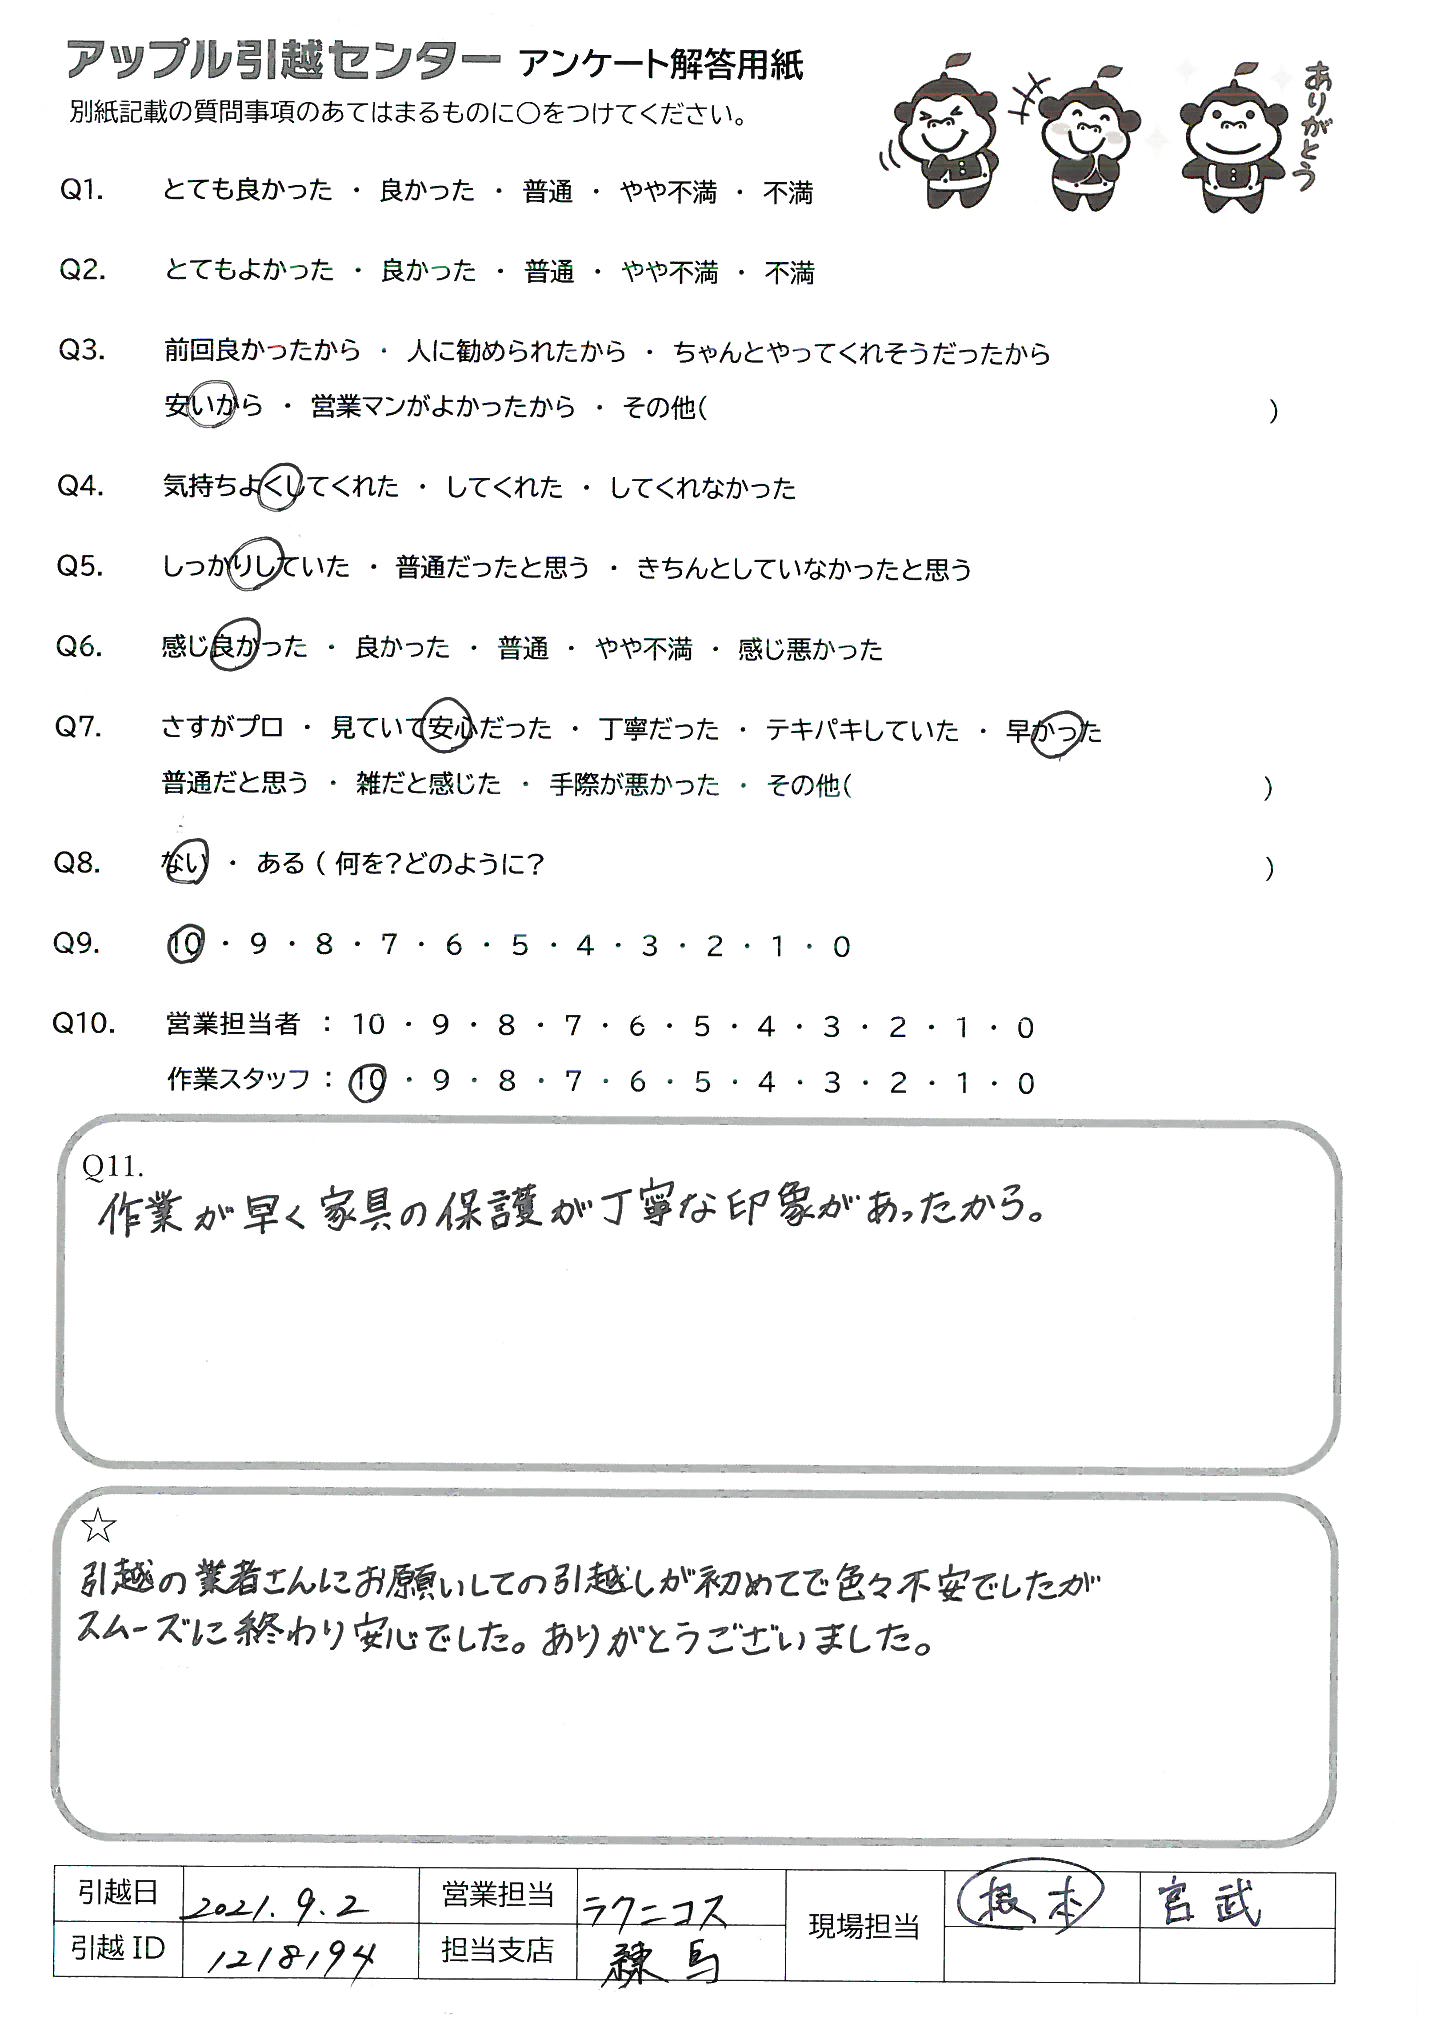 アップル引越センター アンケート解答用紙
別紙記載の質問事項のあてはまるものに○をつけてください。
ありがとう
Q1. とても良かった ・ 良かった ・ 普通 ・ やや不満 ・ 不満
Q2. とてもよかった ・ 良かった ・ 普通 ・ やや不満 ・ 不満
Q3. 前回良かったから ・ 人に勧められたから ・ ちゃんとやってくれそうだったから
安いから ・ 営業マンがよかったから ・ その他( )
Q4. 気持ちよくしてくれた ・ してくれた ・ してくれなかった
Q5. しっかりしていた ・ 普通だったと思う ・ きちんとしていなかったと思う
Q6. 感じ良かった ・ 良かった ・ 普通 ・ やや不満 ・ 感じ悪かった
Q7. さすがプロ ・ 見ていて安心だった ・ 丁寧だった ・ テキパキしていた ・ 早かった
普通だと思う ・ 雑だと感じた ・ 手際が悪かった ・ その他( )
Q8. ない ・ ある ( 何を?どのように? )
Q9. 10 ・ 9 ・ 8 ・ 7 ・ 6 ・ 5 ・ 4 ・ 3 ・ 2 ・ 1 ・ 0
Q10. 営業担当者 : 10 ・ 9 ・ 8 ・ 7 ・ 6 ・ 5 ・ 4 ・ 3 ・ 2 ・ 1 ・ 0
作業スタッフ : 10 ・ 9 ・ 8 ・ 7 ・ 6 ・ 5 ・ 4 ・ 3 ・ 2 ・ 1 ・ 0
Q11.
作業が早く家具の保護が丁寧な印象があったから。
☆
引越の業者さんにお願いしての引越しが初めてで色々不安でしたが
スムーズに終わり安心でした。ありがとうございました。
引越日 2021.9.2 営業担当 ラクニコス 現場担当 根本 宮武
引越ID 1218194 担当支店 練馬